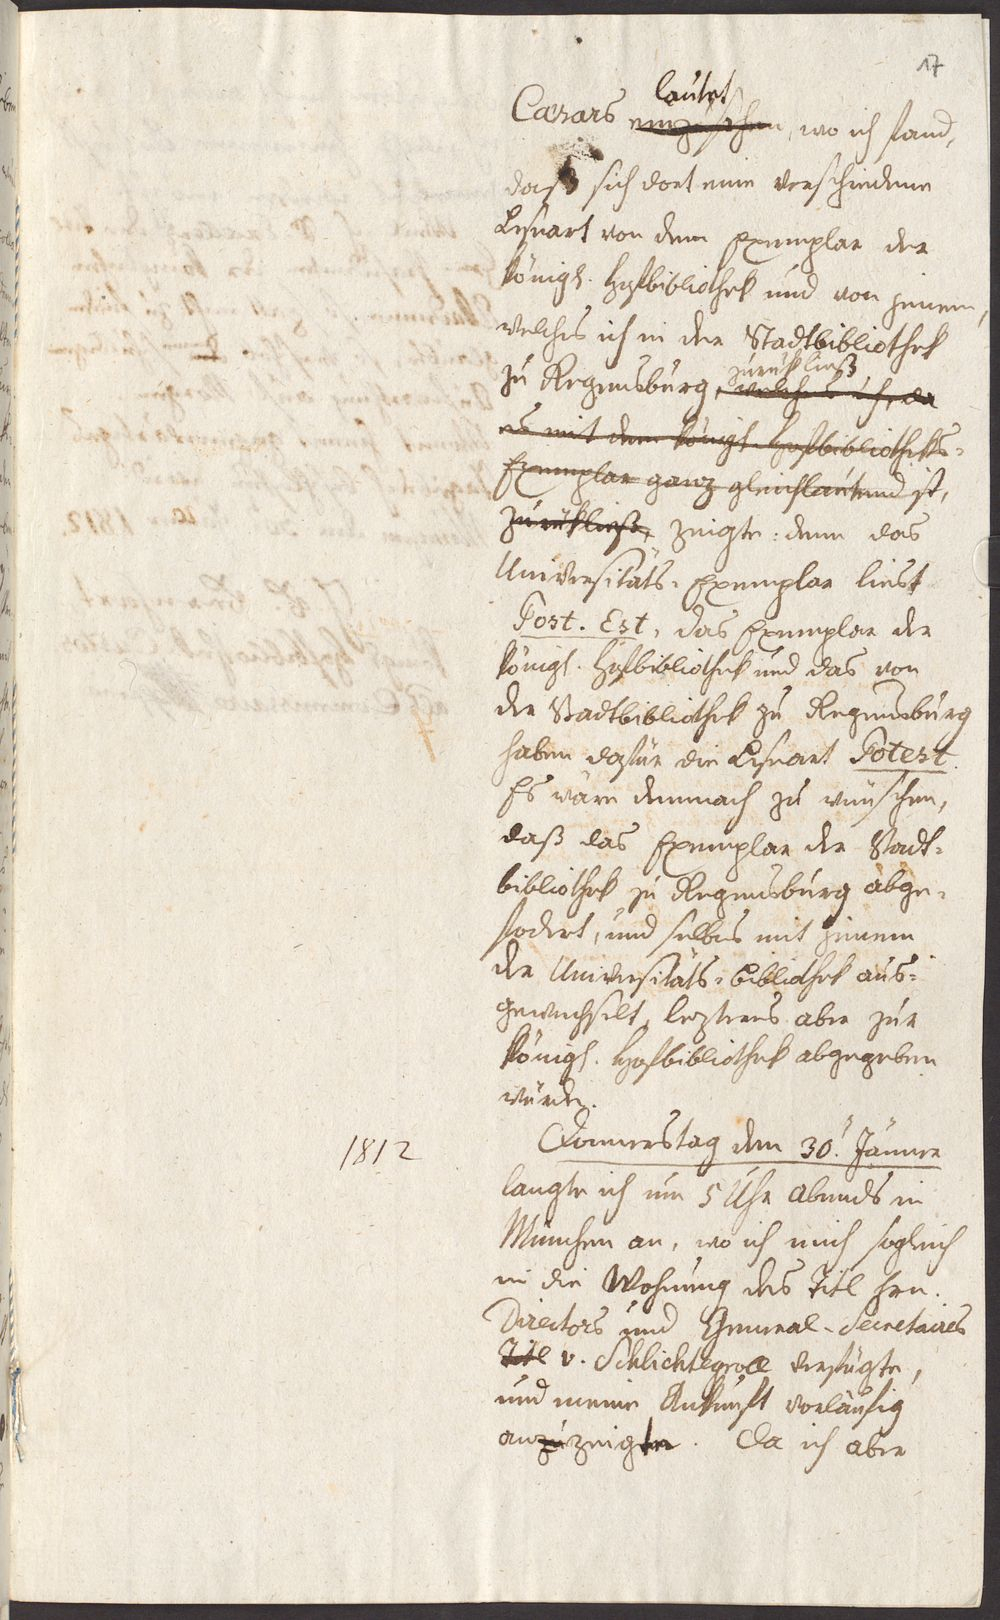 17
Cæsars lautet einzusehen, wo ich fand,
daß sich dort eine verschiedene
Leseart von dem Exemplar der
königl. Hofbibliothek und von jenem,
welches ich in der Stadtbibliothek
zu Regensburg zurükließ, welches ich, da
es mit dem königl. Hofbibliotheks-
Exemplar ganz gleichlautend ist,
zurükließ, zeigte: denn das
Universitäts-Exemplar liest
Post. Est, das Exemplar der
königl. Hofbibliothek und das von
der Stadtbibliothek zu Regensburg
haben dafür die Leseart Potest.
Es wäre demnach zu wünschen,
daß das Exemplar der Stadt-
bibliothek zu Regensburg abge-
fodert, und selbes mit jenem
der Universitäts-Bibliothek aus-
gewechselt, lezteres aber zur
königl. Hofbibliothek abgegeben
würde.
1812
Donnerstag den 30. Jänner
langte ich um 5 Uhr Abends in
München an, wo ich mich sogleich
in die Wohnung des Titl Hrn.
Directors und General-Secretaires
Titl v. Schlichtegroll verfügte,
und meine Ankunft vorläufig
anzuzeigte. Da ich aber